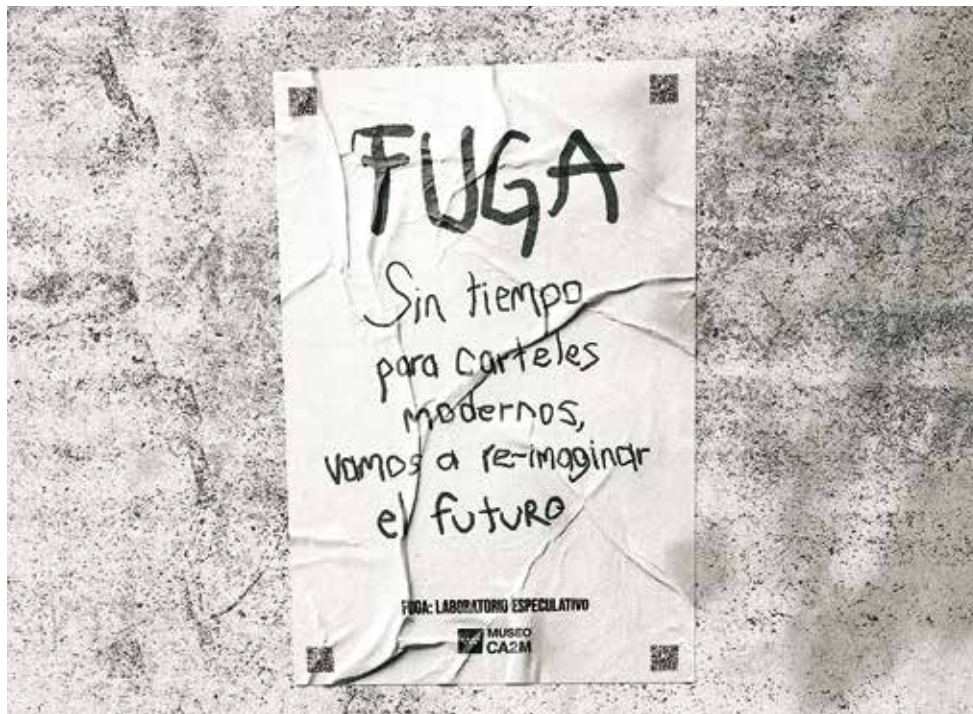 FUGA
Sin tiempo
para carteles
modernos,
vamos a re-imaginar
el futuro
FUGA: LABORATORIO ESPECULATIVO
MUSEO
CA2M